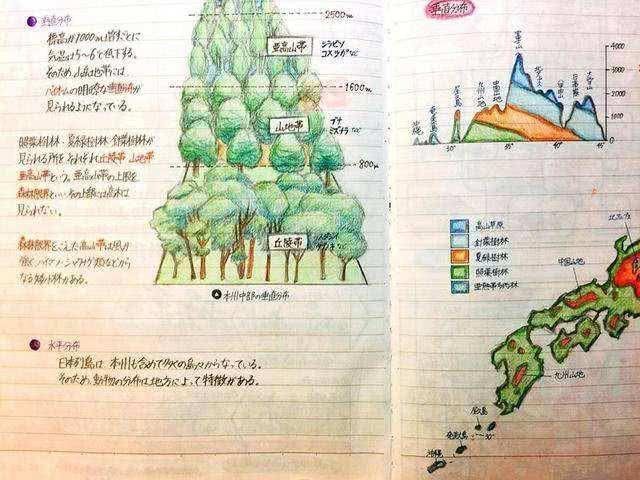 垂直分布
標高が1000m増すごとに
気温は5〜6℃低下する。
そのため、山岳地帯には
バイオームの明確な垂直分布が
見られるようになっている。
照葉樹林・夏緑樹林・針葉樹林が
見られる所をそれぞれ丘陵帯・山地帯
亜高山帯という。亜高山帯の上限を
森林限界といい、その上部には高木は
見られない。
森林限界をこえた高山帯は風が
強くハイマツ・シャクナゲ類などから
なる低木林がある。
2500m
亜高山帯
シラビソ
コメツガなど
1600m
山地帯
ブナ
ミズナラなど
800m
丘陵帯
本州中部の垂直分布
水平分布
日本列島は、本州も含めて多くの島々からなっている。
そのため、動物の分布は地方によって特徴がある。
垂直分布
4000
3000
2000
1000
0
富士山
北アルプス
八甲田山
大雪山
中国山地
九州山地
屋久島
奄美大島
沖縄
30°
35°
40°
45°
高山草原
針葉樹林
夏緑樹林
照葉樹林
亜熱帯多雨林
中国山地
九州山地
屋久島
奄美大島
30°
沖縄